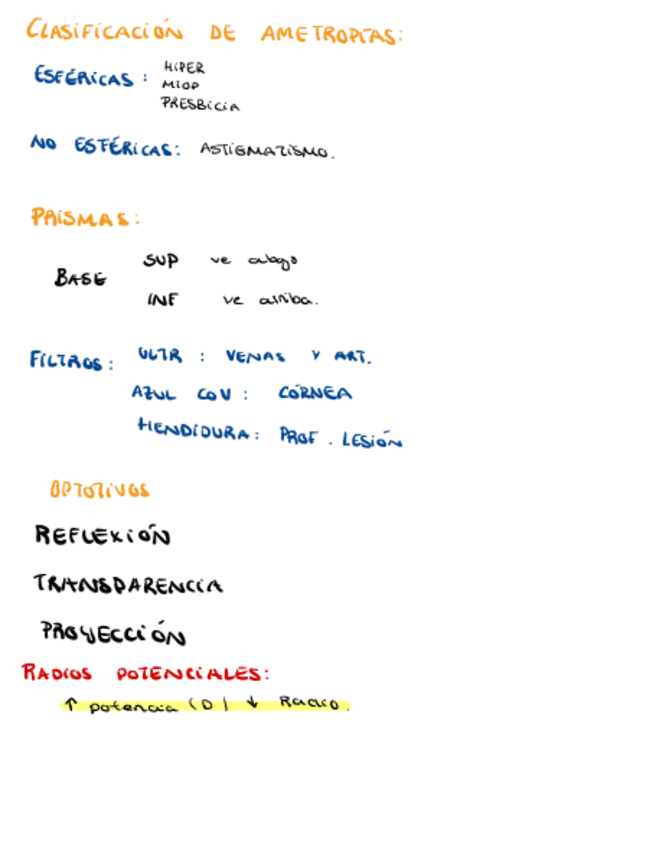 CLASIFICACIÓN DE AMETROPÍAS:
ESFÉRICAS: HIPER
MIOP
PRESBICIA
NO ESFÉRICAS: ASTIGMATISMO.
PRISMAS:
BASE
SUP ve abajo
INF ve arriba.
FILTROS: ULTR : VENAS Y ART.
AZUL COV : CÓRNEA
HENDIDURA: PROF. LESIÓN
OPTOTIVOS
REFLEXIÓN
TRANSPARENCIA
PROYECCIÓN
RADIOS POTENCIALES:
↑ potencia (D) ↓ Radio.